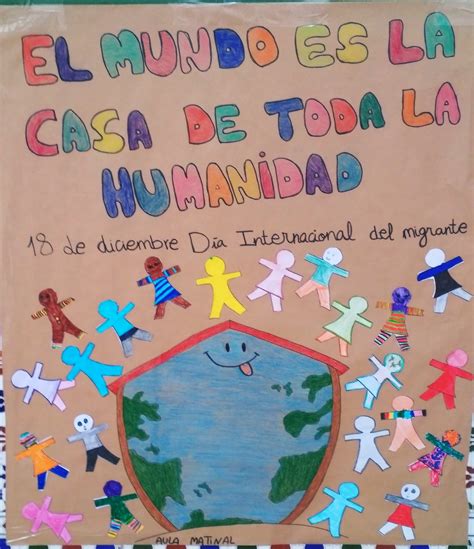 EL MUNDO ES LA
CASA DE TODA LA
HUMANIDAD
18 de diciembre Día Internacional del migrante
AULA MATINAL